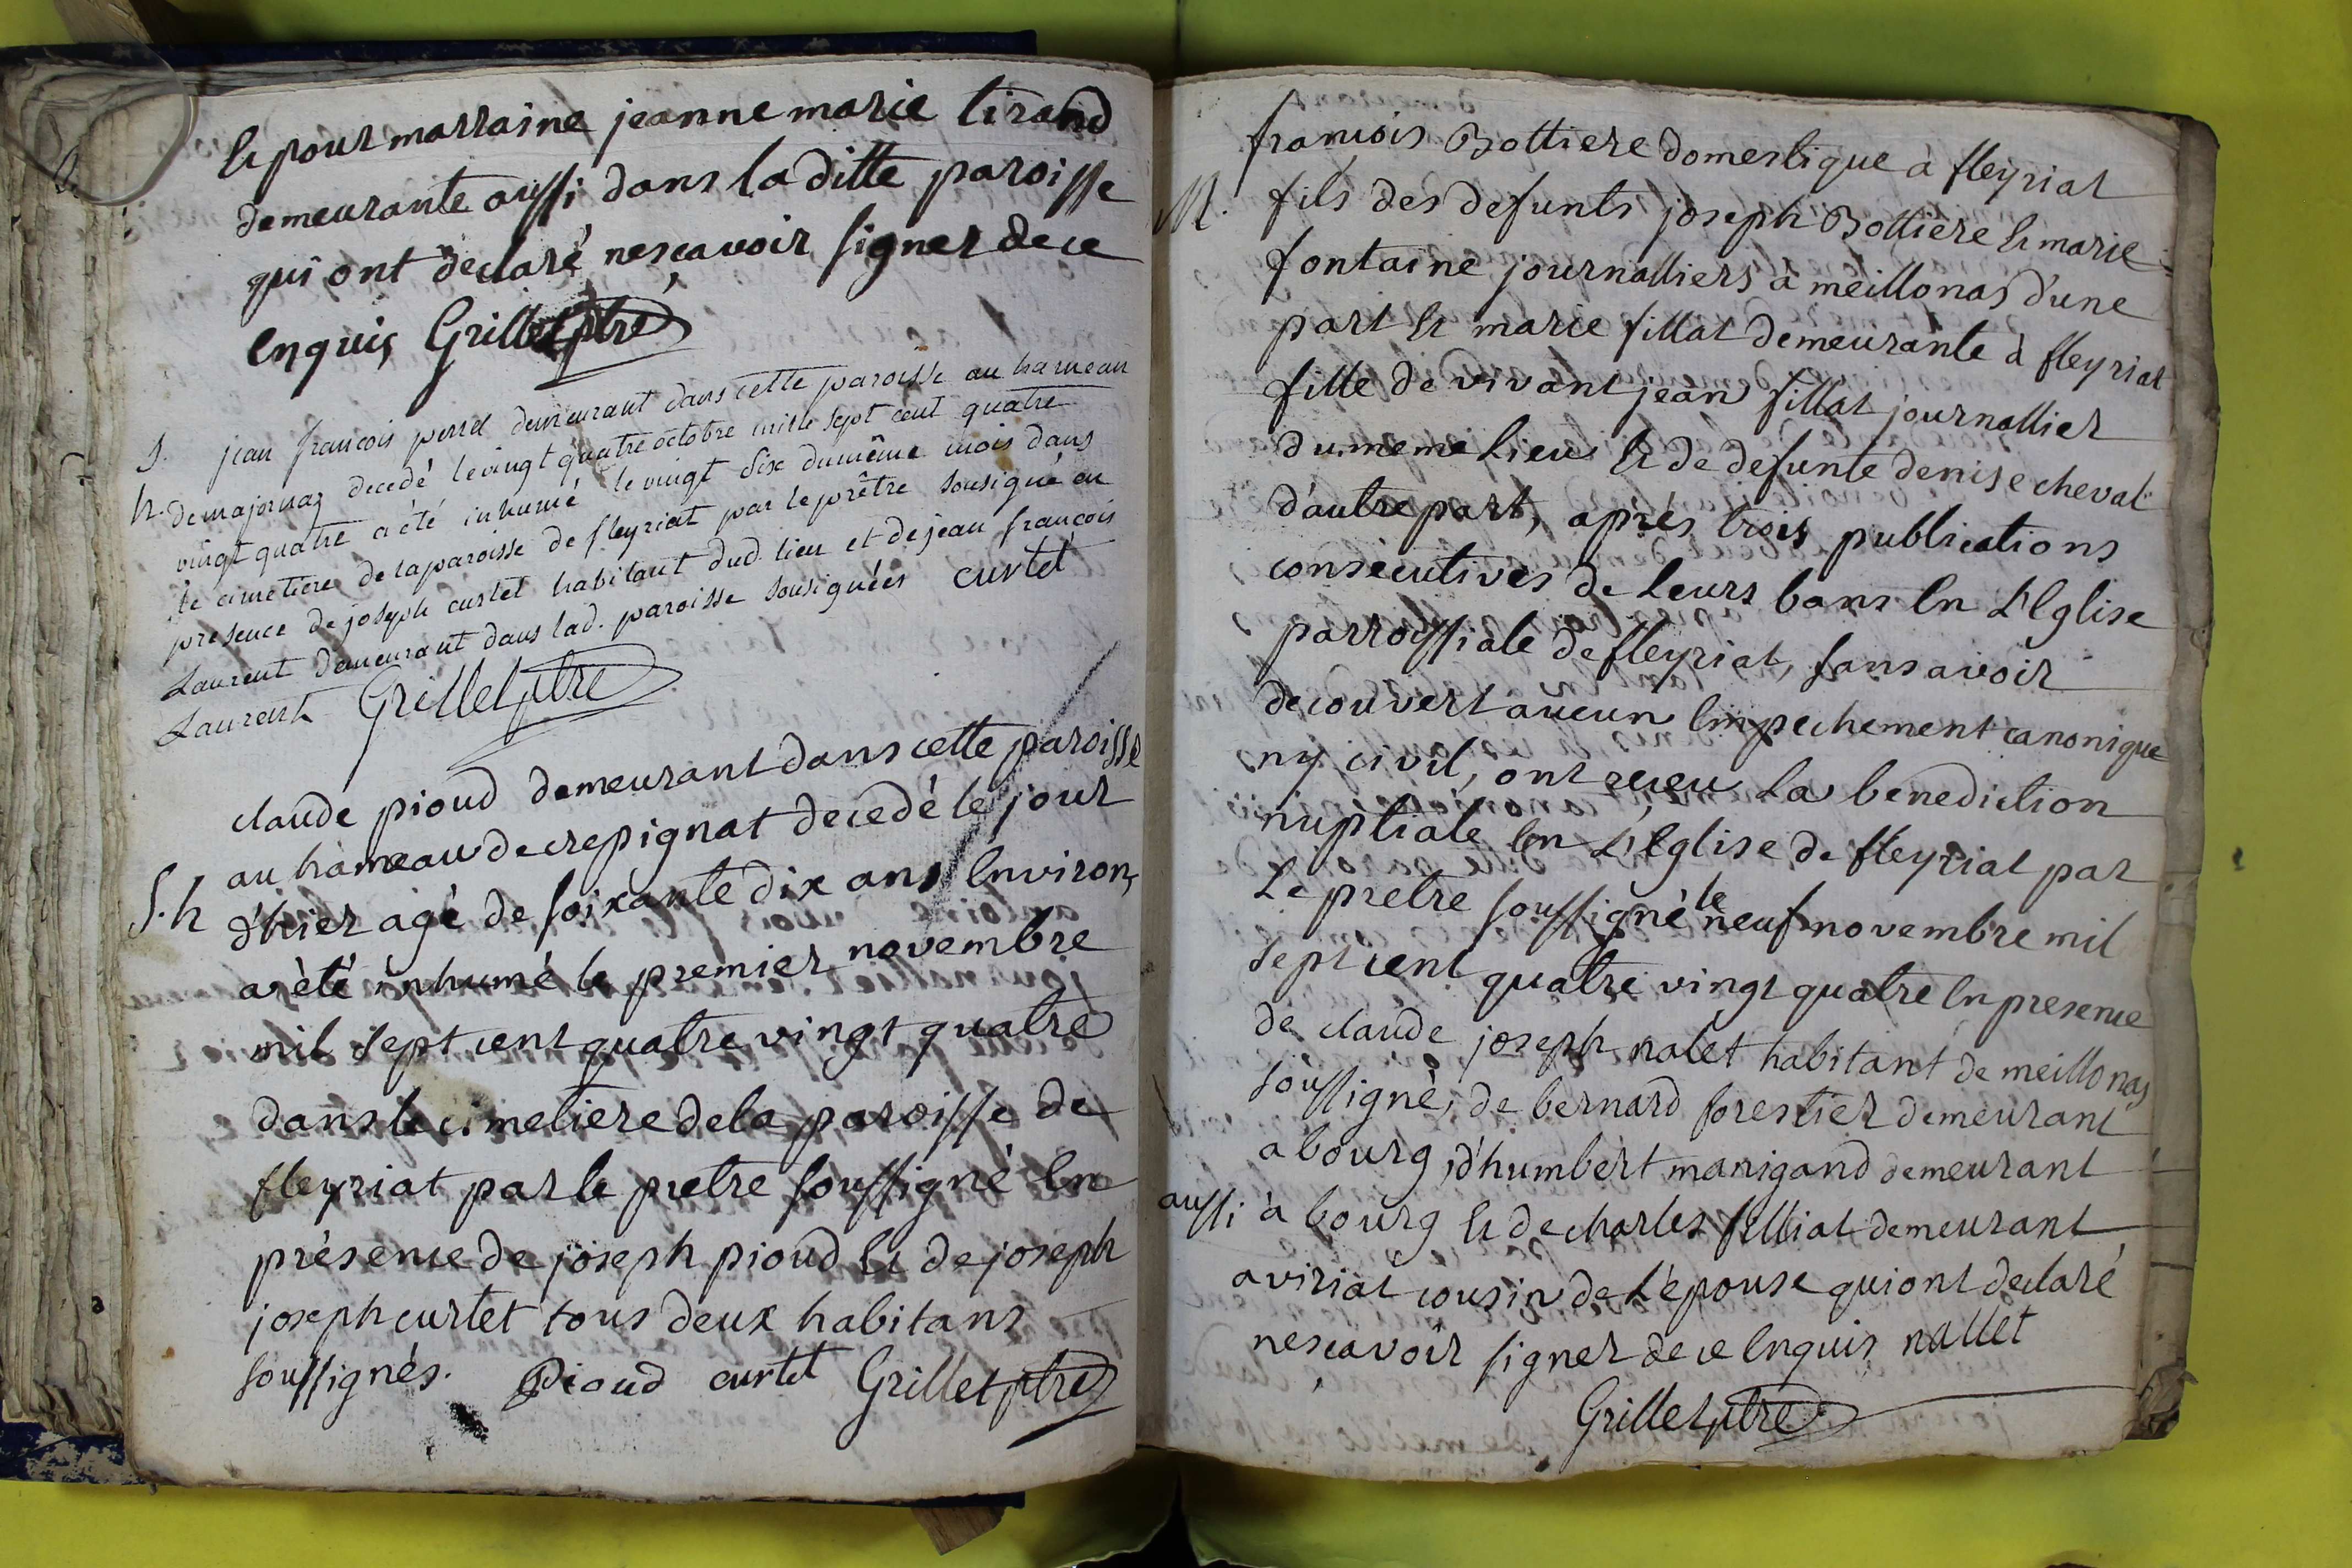 et pour marraine jeanne marie tirand
demeurante aussi dans la ditte paroisse
qui ont declaré nescavoir signer de ce
enquis Grillet ptre
S. jean francois perret demeurant dans cette paroisse au hameau
h. de majornaz decedé le vingt quatre octobre mille sept cent quatre
vingt quatre a été inhumé le vingt six du même mois dans
le cimetiere de la paroisse de fleyriat par le prêtre sousigné en
presence de joseph curtet habitant dud. lieu et de jean francois
Laurent demeurant dans lad. paroisse sousignées curtet
Laurent Grillet ptre
claude pioud demeurant dans cette paroisse
au hameau de crepignat decedé le jour
S. h d'hier agé de soixante dix ans environ,
a été inhumé le premier novembre
mil sept cent quatre vingt quatre
dans le cimetiere de la paroisse de
fleyriat par le pretre soussigné en
présence de joseph pioud et de joseph
joseph curtet tous deux habitans
soussignés. Pioud curtet Grillet ptre
francois Bottiere domestique à fleyriat
M. fils des defunts joseph Bottiere et marie
fontaine journalliers à meillonas d'une
part et marie fillat demeurante à fleyriat
fille de vivant jean fillat journallier
du meme lieu et de defunte denise cheval
d'autre part, aprés trois publications
consecutives de leurs bans en L'Eglise
parroissiale de fleyriat, sans avoir
decouvert aucun empechement canonique
ny civil, ont receu la benediction
nuptiale en L'Eglise de fleyriat par
Le pretre soussigné le neuf novembre mil
sept cent quatre vingt quatre en presence
de claude joseph nalet habitant de meillonas
soussigné, de bernard forestier demeurant
a bourg, d'humbert manigand demeurant
aussi à bourg et de charles filliat demeurant
a viriat cousin de L'epouse qui ont declaré
nescavoir signer de ce enquis nallet
Grillet ptre